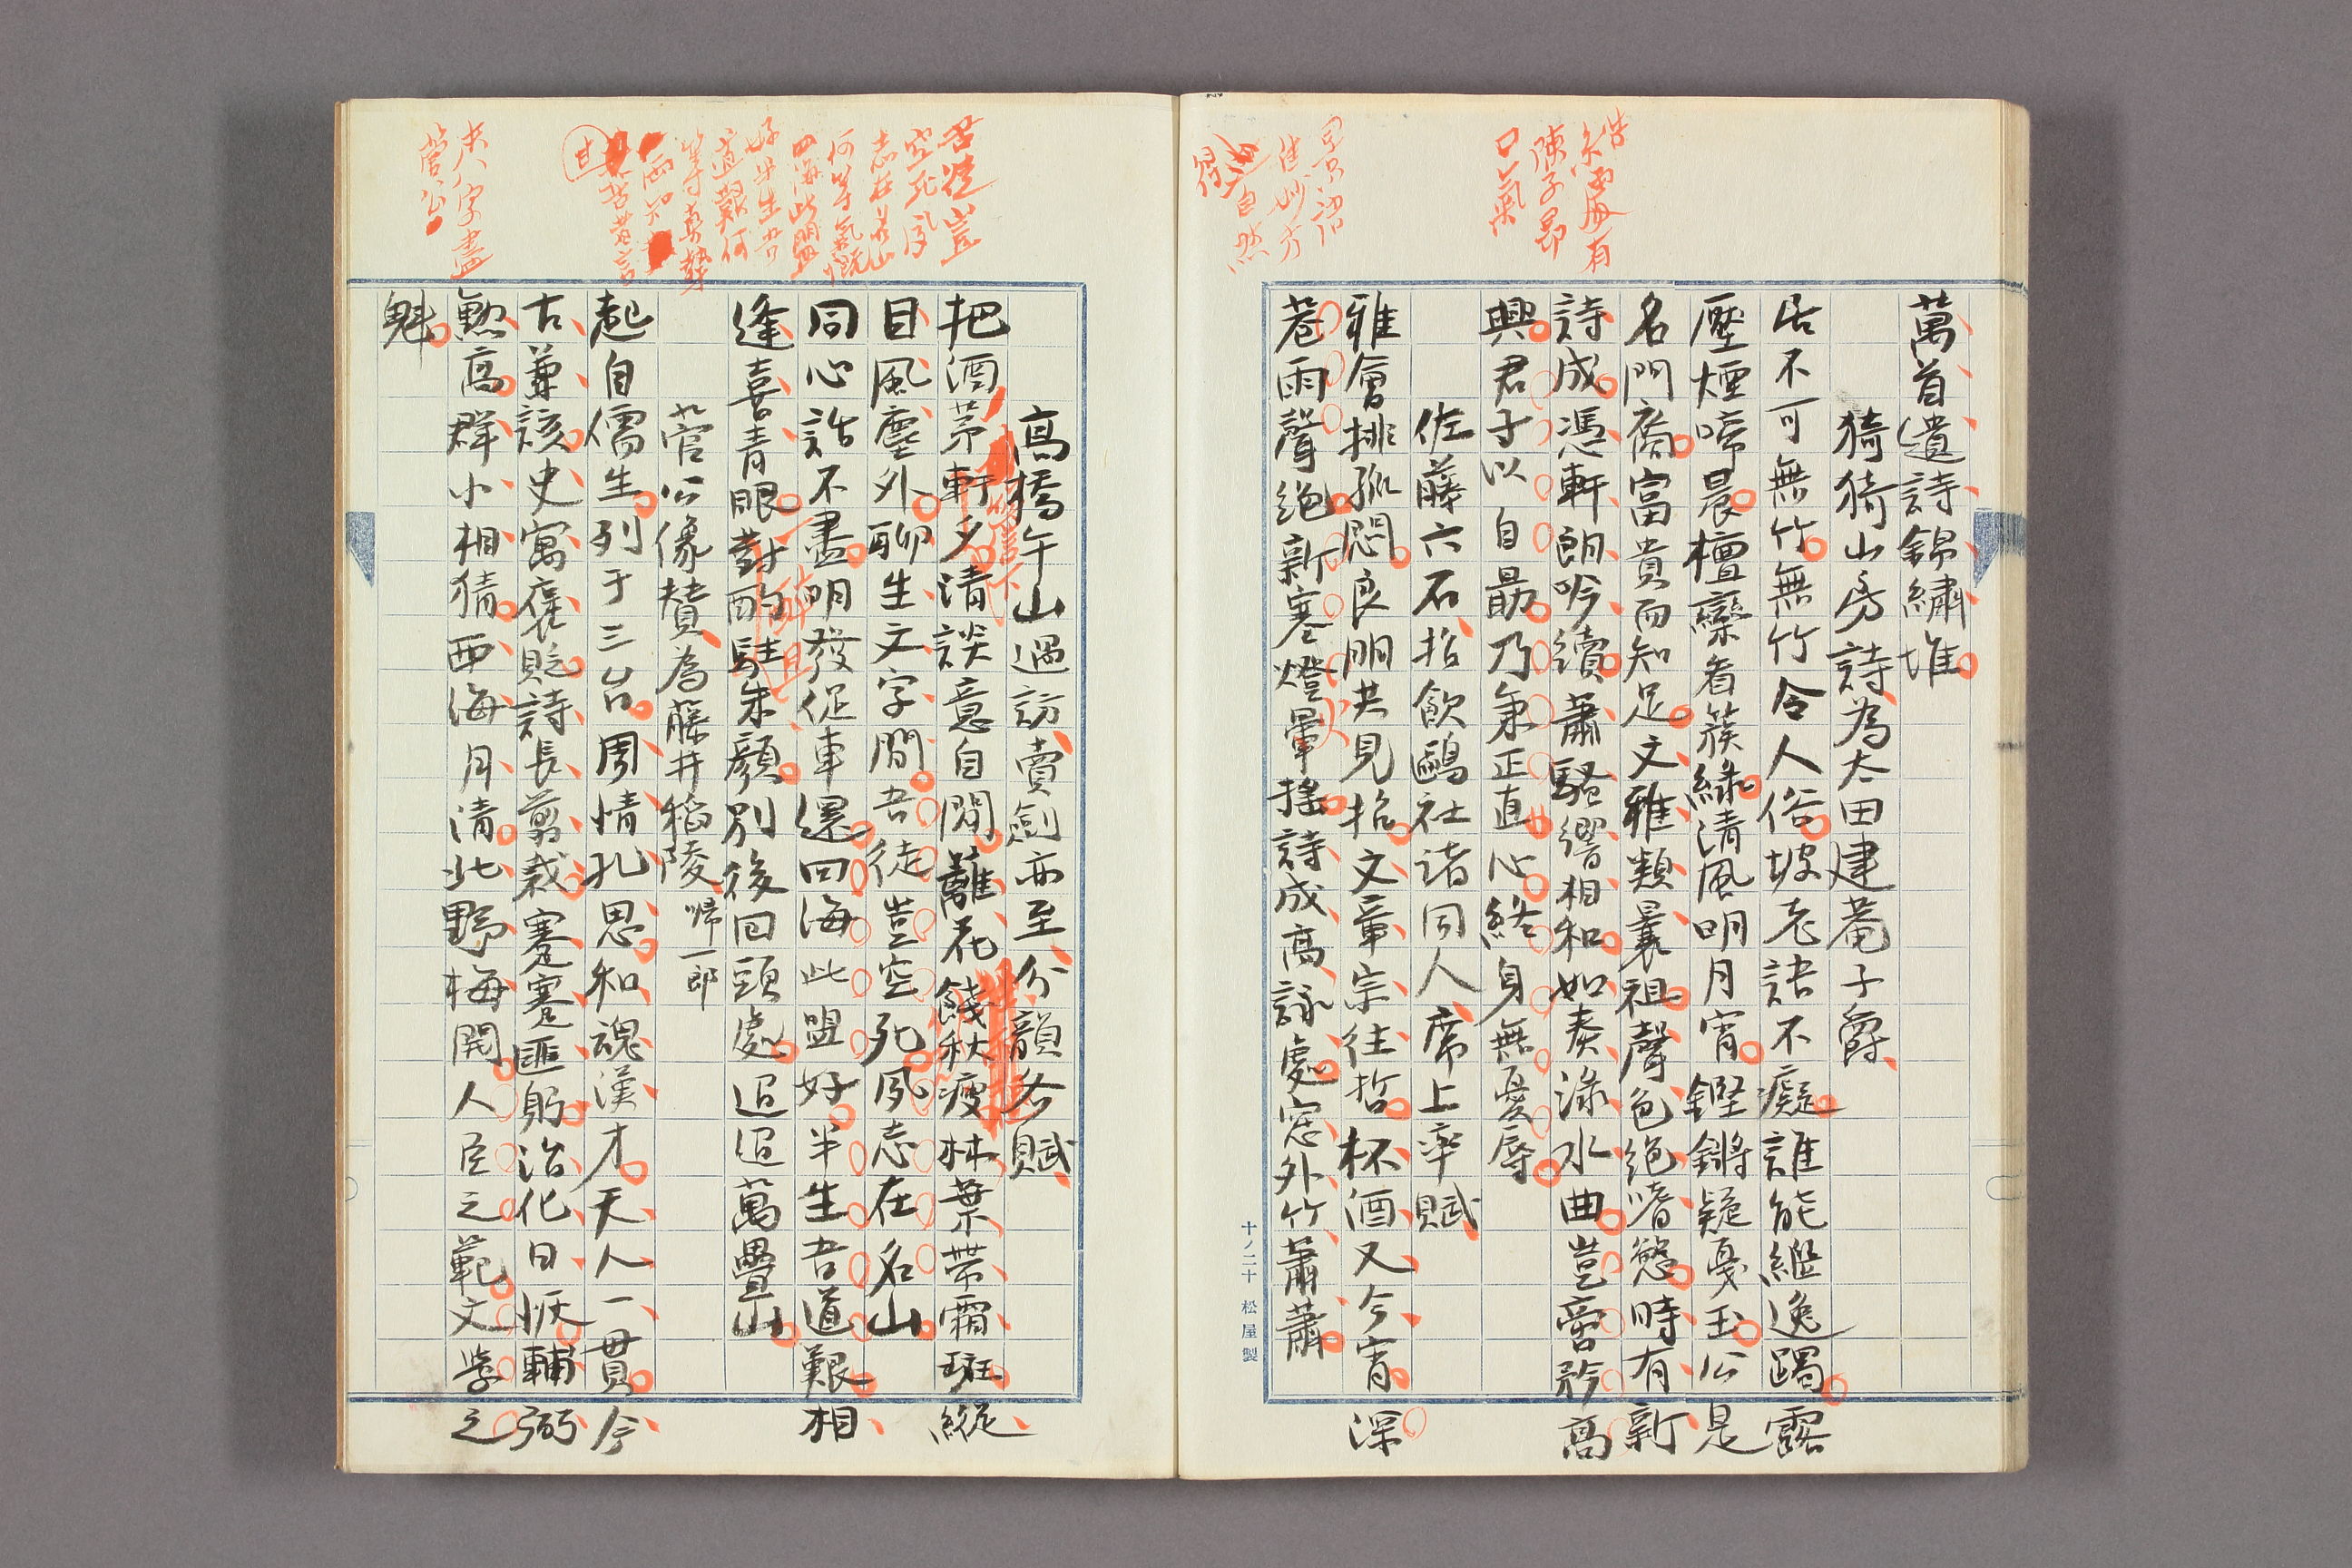 萬首遺詩錦繡堆
猗猗山房詩為太田建菴子爵
居不可無竹無竹令人俗坡老語不癡誰能繼逸躅露
壓煙啼晨檀欒看簇緑清風明月宵鏗鏘疑戛玉公是
名門裔富貴而知足文雅類曩祖聲色絶嗜慾時有新
詩成憑軒朗吟續蕭騷響相和如奏淥水曲豈啻矜高
興君子以自勗乃秉正直心終身無憂辱
佐藤六石招飲鷗社諸同人席上率賦
雅會排孤悶良朋共見招文章宗往哲杯酒又今宵深
巷雨聲絶新寒燈暈搖詩成高詠處窓外竹蕭蕭
浩
陳子昂
口氣
佳妙
自然
得
十ノ二十 松屋製
高橋午山過訪賣劍亦至分韻各賦
把酒茅軒夕清談意自閒離花餞秋瘦林葉帶霜斑縱
目風塵外聊生文字間吾徒豈空死夙志在名山
同心話不盡明發促車還四海此盟好半生吾道艱相
逢喜青眼對酌駐朱顏別後回頭處迢迢萬疊山
菅公像賛為藤井稻陵啼一郎
起自儒生列于三台周情孔思和魂漢才天人一貫今
古兼該史寓褒貶詩長翦裁蹇蹇匪躬治化日恢輔弼
勲高群小相猜西海月清北野梅開人臣之範文學之
魁
吾徒豈
空死夙
志在名山
何等氣慨
四海此盟
好半生吾
道艱何
等真摯
八字盡
菅公